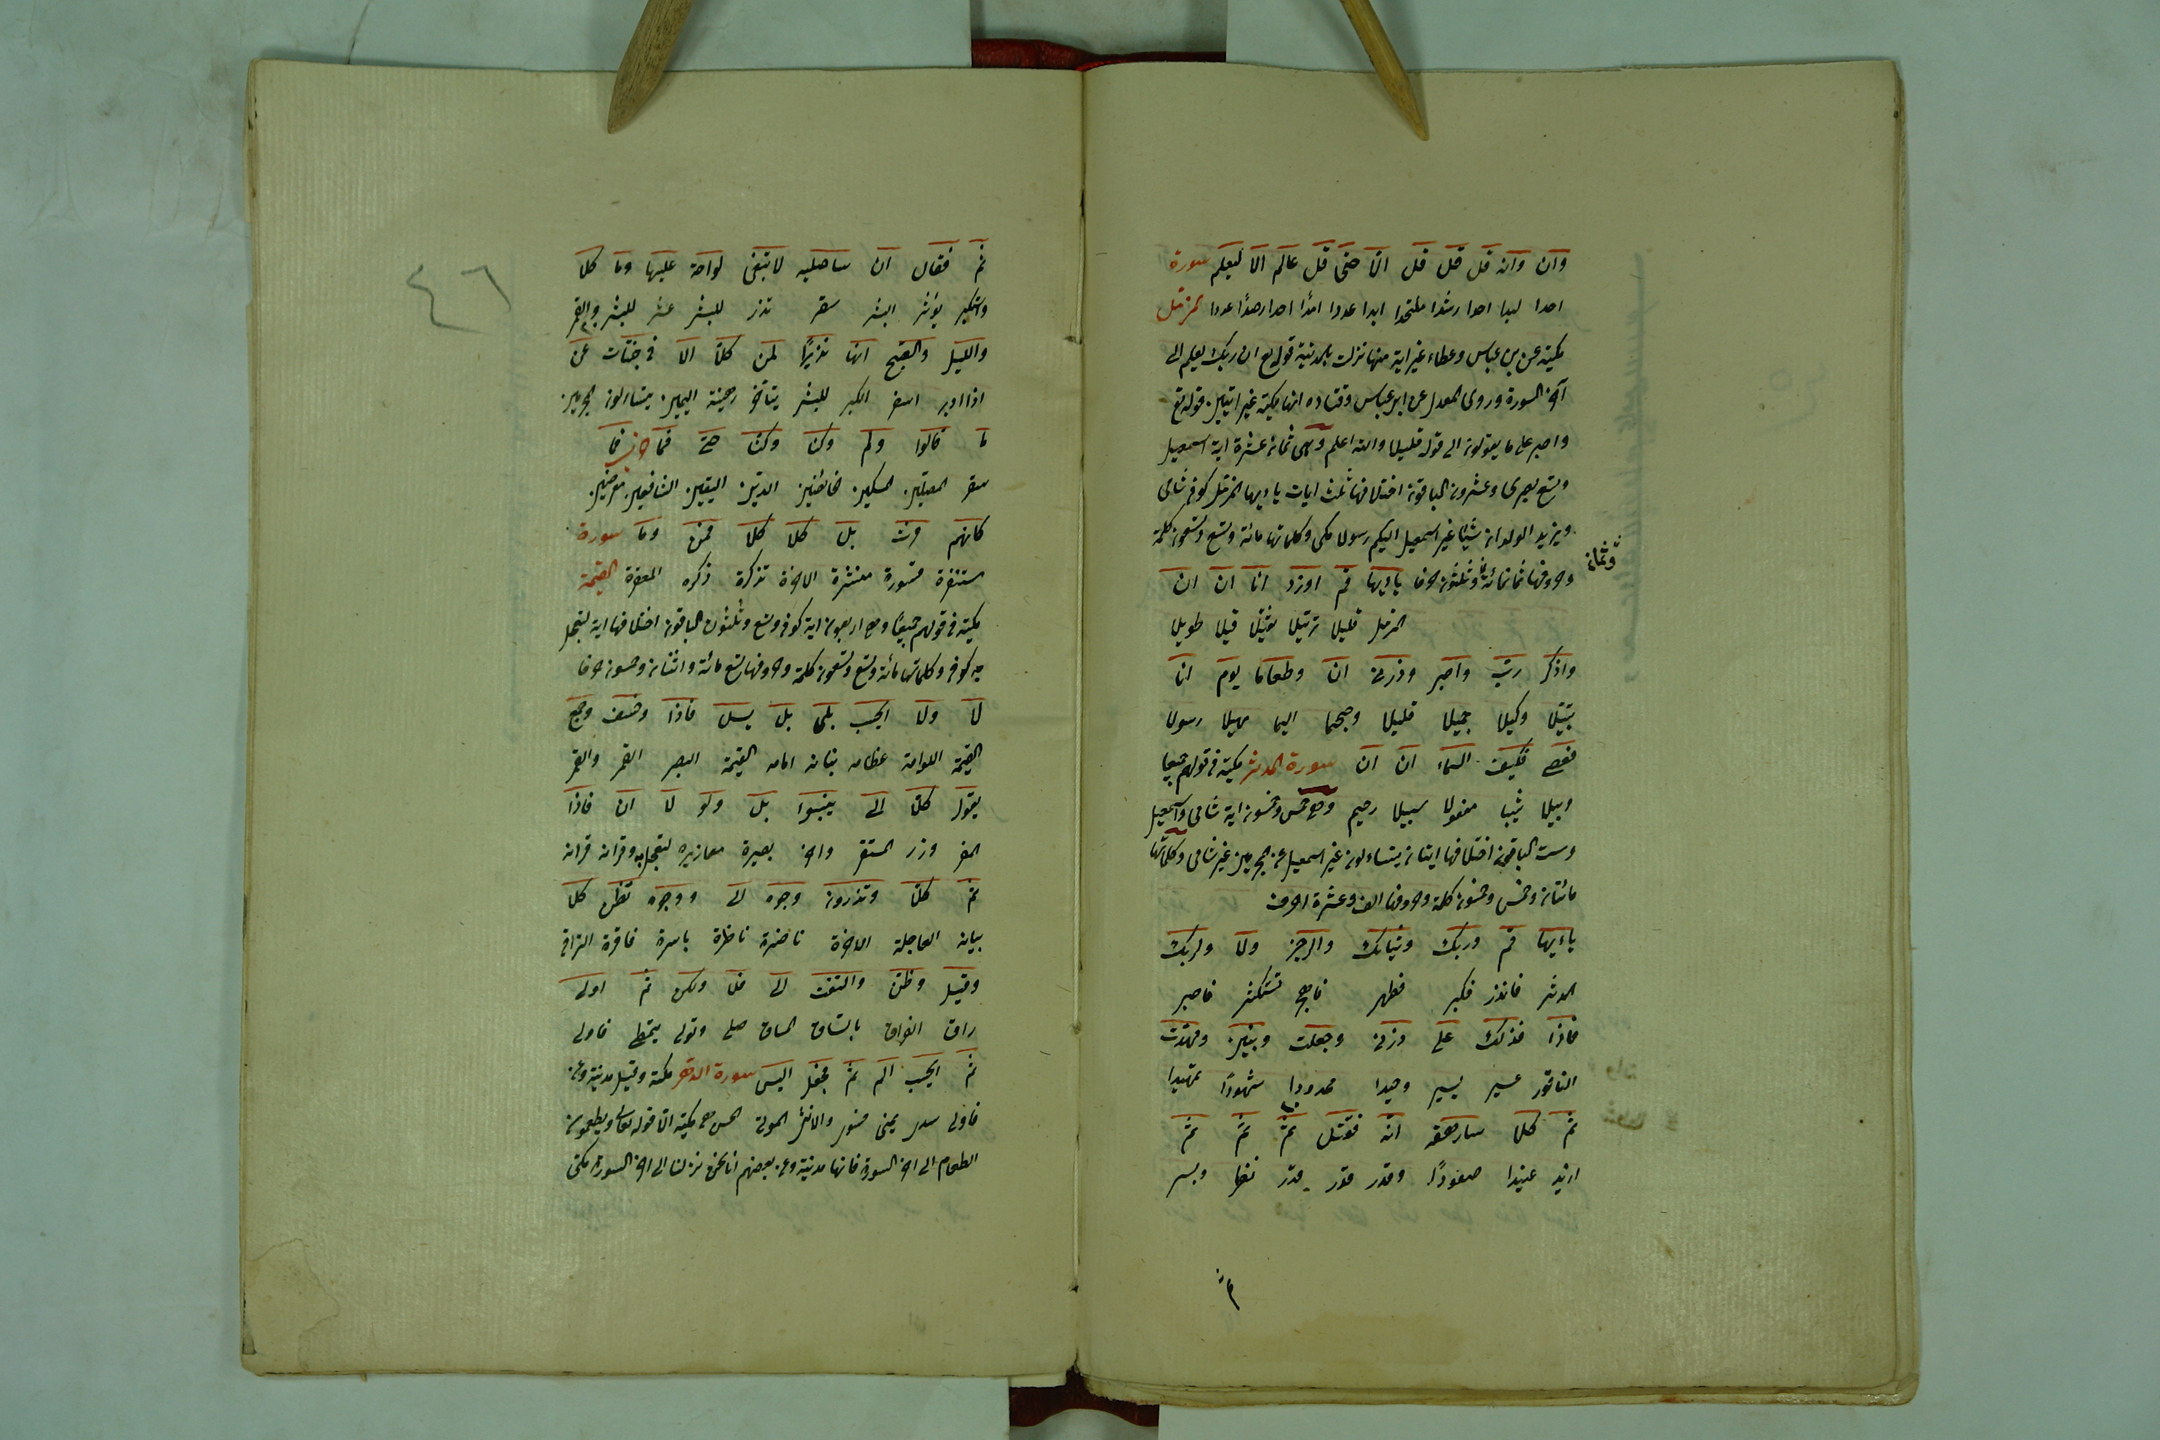 وان وانه قل قل قل الا حتى قل عالم الا ليعلم سورة
احدا لبدا احدا رشدا ملتحدا ابدا عددا امدا احدا رصدا عددا المزمل
مكية عن بن عباس وعطاء غير اية منها نزلت بالمدنية قوله تع ان ربك يعلم الى
آخر السورة وروى المعدل عن ابن عباس وقتاده انها مكية غير ايتين قوله تع
واصبر على ما يقولون الى قوله قليلا والله اعلم وهى ثمان عشرة اية اسمعيل
وتسع بصرى وعشرون الباقون اختلافها ثلث ايات ياايها المزمل كوفى شامى
ويزيد الولدان شيبا غير اسمعيل اليكم رسولا مكى وكلماتها مائة وتسع وتسعون كلمة
وثمان
وحروفها ثمانمائة وثلثون حرفا ياايها قم اوزد انا ان ان
المزمل قليلا ترتيلا ثقيلا قيلا طويلا
واذكر رب واصبر وذرنى ان وطعاما يوم انا
تبتيلا وكيلا جميلا قليلا وجحيما اليما مهيلا رسولا
فعصى فكيف السماء ان ان سورة المدثر مكية فى قولهم جميعا
وبيلا شيبا مفعولا سبيلا رحيم وهى خمس وخمسون اية شامى واسمعيل
وست الباقون اختلافها ايتان يتساءلون غير اسمعيل عن المجرمين غير شامى وكلماتها
مائتان وخمس وخمسون كلمة وحروفها الف وعشرة احرف
ياايها قم وربك وثيابك والرجز ولا ولربك
المدثر فانذر فكبر فطهر فاهجر تستكثر فاصبر
فاذا فذلك على ذرنى وجعلت وبنين ومهدت
الناقور عسير يسير وحيدا ممدودا شهودا تمهيدا
ثم كلا سارهقه انه فقتل ثم ثم ثم
ازيد عنيدا صعودا وقدر قدر قدر نظر وبسر
ثم
٤٦
ثم فقال ان ساصليه لا تبقى لواحة عليها وما كلا
واستكبر يؤثر البشر سقر تذر للبشر عشر للبشر والقمر
والليل والصبح انها نذيرا لمن كلا الا فى جنات عن
اذا ادبر اسفر الكبر للبشر يتاخر رهينة اليمين يتساءلون المجرمين
ما قالوا ولم وكنا وكنا حتى فما فما
سقر المصلين المسكين الخائضين الدين اليقين الشافعين معرضين
كانهم فرت بل كلا كلا فمن وما سورة
مستنفرة قسورة منشرة الاخرة تذكرة ذكره المغفرة القيمة
مكية فى قولهم جميعا وهى اربعون اية كوفى وتسع وثلثون الباقون اختلافها اية لتعجل
به كوفى وكلماتها مائة وتسع وتسعون كلمة وحروفها تسع مائة واثنان وخمسون حرفا
لا ولا ايحسب بلى بل يسل فاذا وخسف وجمع
القيمة اللوامة عظامه بنانه امامه القيمة البصر القمر والقمر
يقول كلا الى ينبؤا بل ولو لا ان فاذا
المفر وزر المستقر واخر بصيرة معاذيره لتعجل به وقرانه قرانه
ثم كلا وتذرون وجوه الى ووجوه تظن كلا
بيانه العاجلة الاخرة ناضرة ناظرة باسرة فاقرة التراقى
وقيل وظن والتفت الى فلا ولكن ثم اولى
راق الفراق بالساق المساق صلى وتولى يتمطى فاولى
ثم ايحسب الم ثم فجعل اليس سورة الدهر مكية وقيل مدنية وعن
فاولى سدى يمنى فسوى والانثى الموتى الحسن هى مكية الا قوله تعالى ويطعمون
الطعام الى اخر السورة فانها مدنية وعن بعضهم انا نحن نزلنا الى اخر السورة مكى